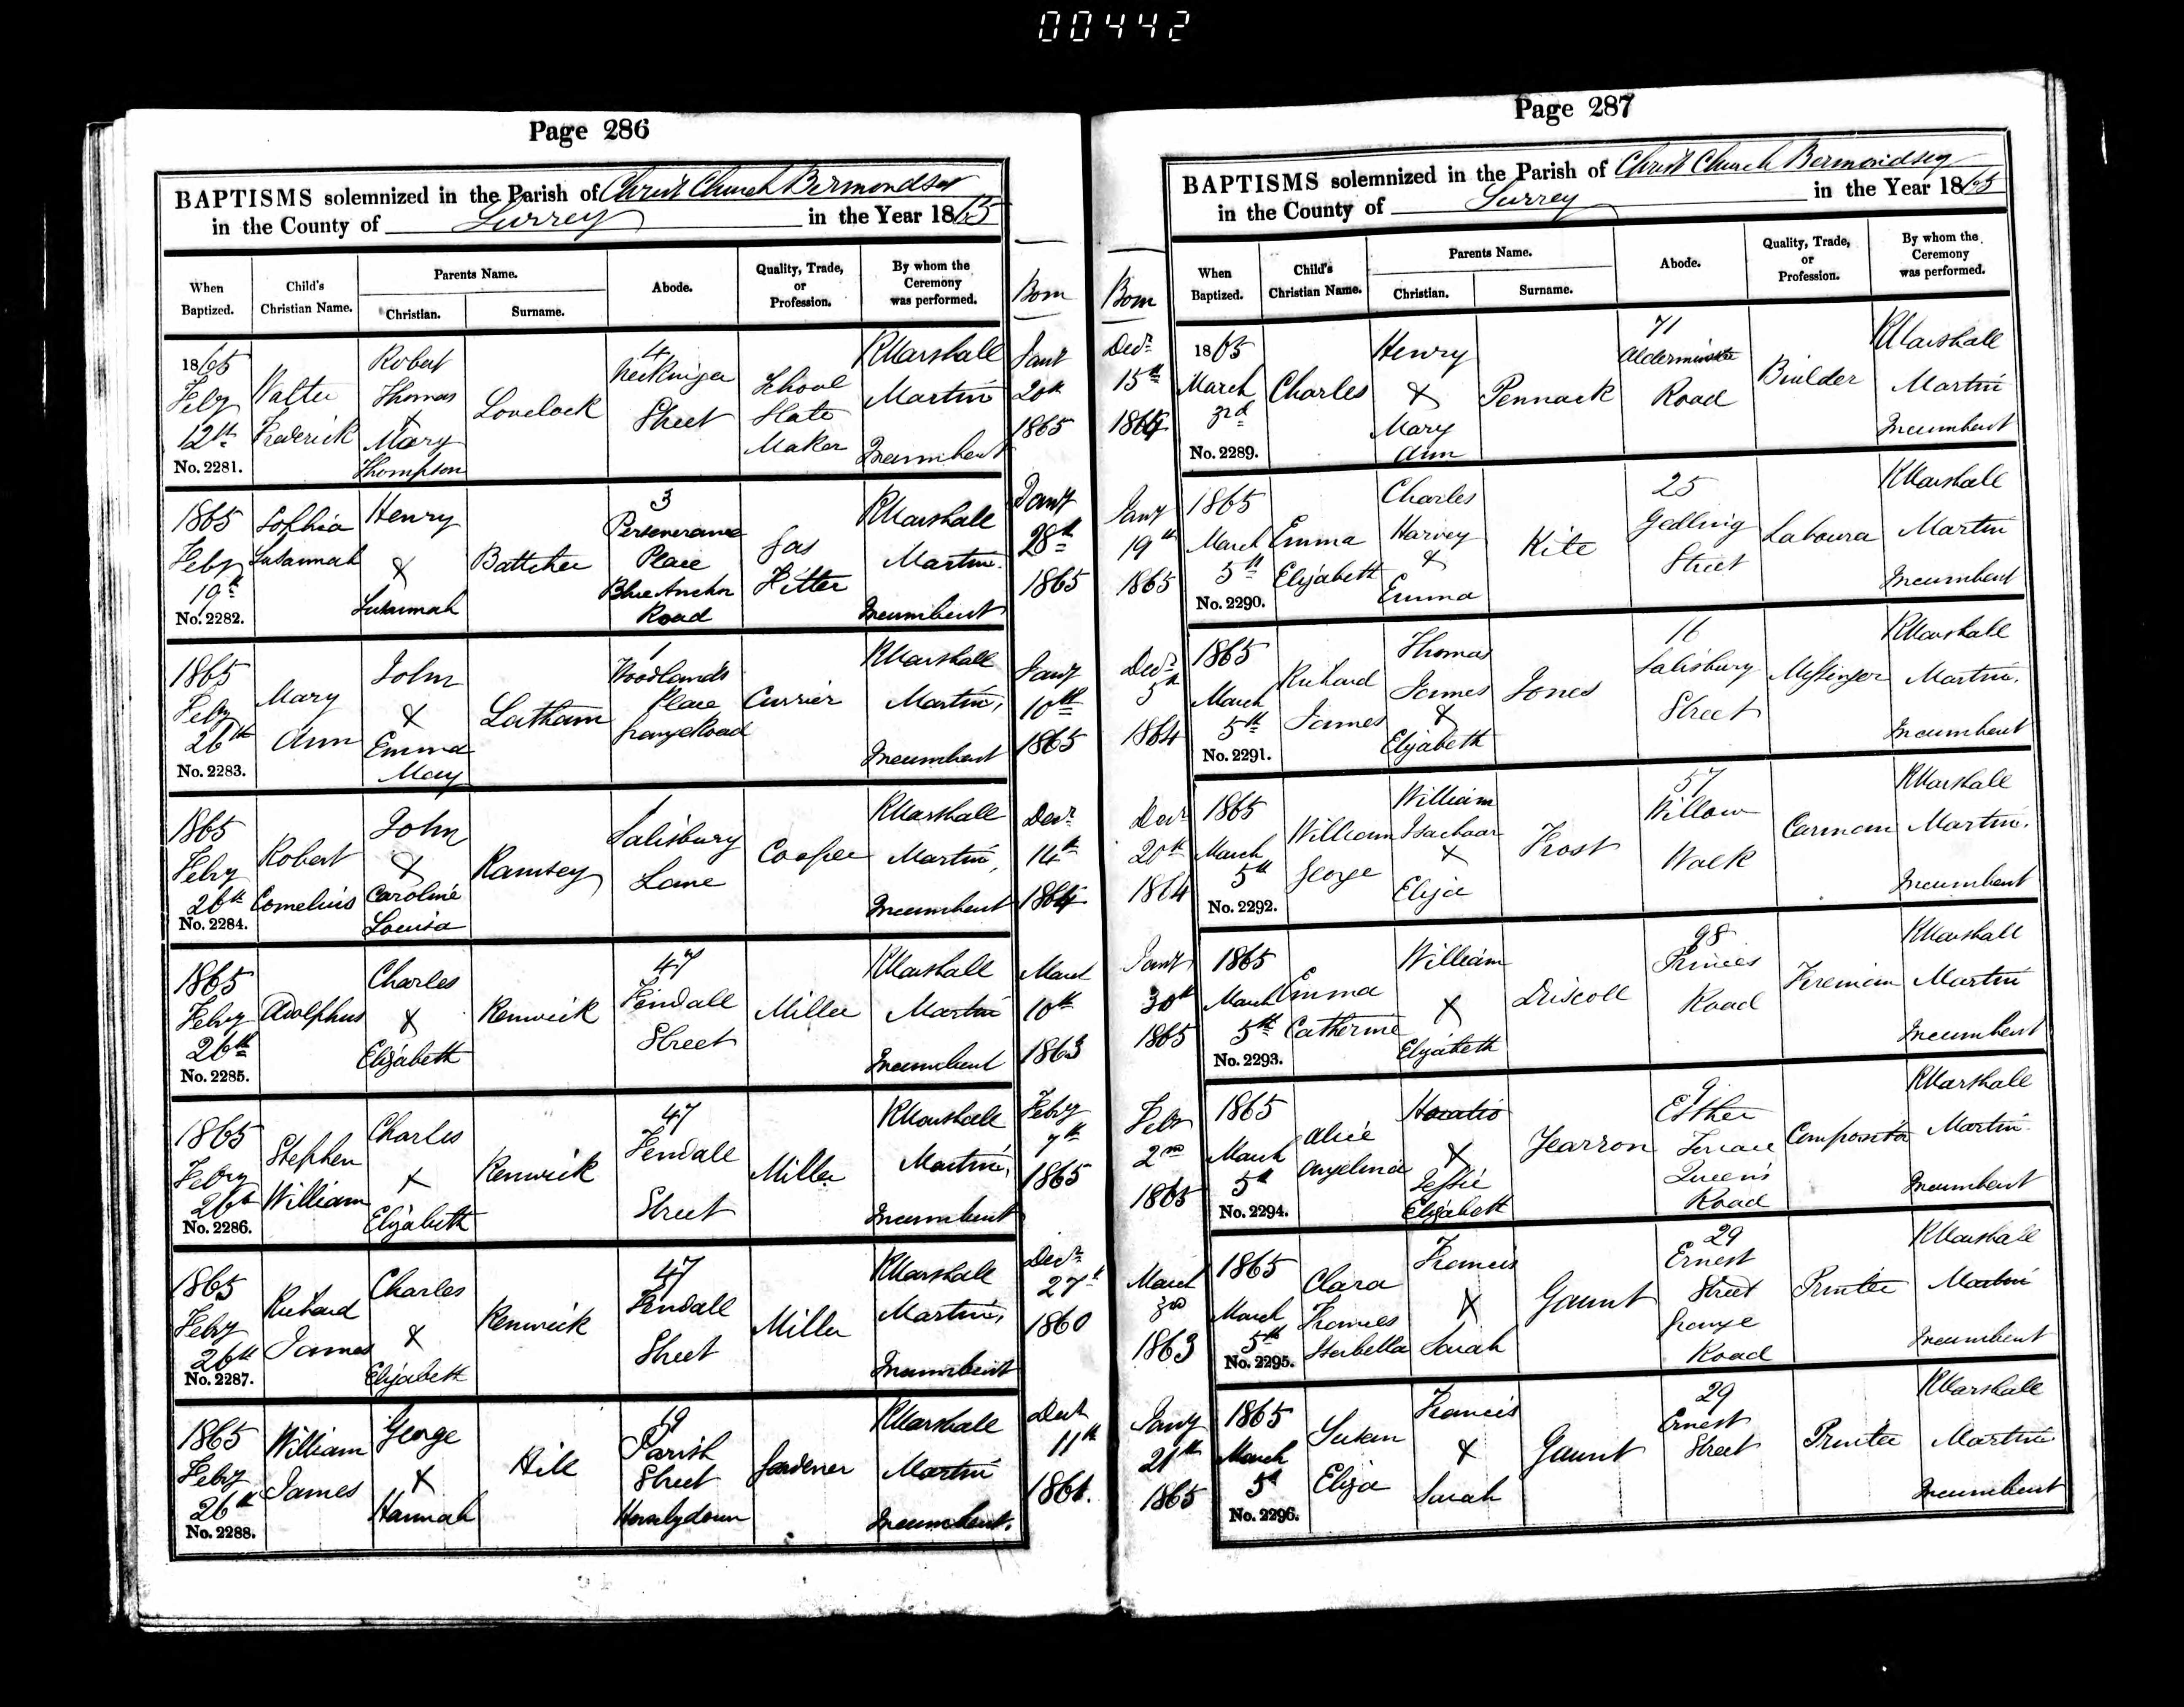 00442
Page 286
BAPTISMS solemnized in the Parish of Christ Church Bermondsey
in the County of Surrey in the Year 1865
When Baptized.
Child's Christian Name.
Parents Name.
Christian.
Surname.
Abode.
Quality, Trade, or Profession.
By whom the Ceremony was performed.
Born
1865 Feby 12th No. 2281.
Walter Frederick
Robert Thomas & Mary Thompson
Lovelock
4 Neckinger Street
School Slate Maker
R Marshall Martin Incumbent
Jany 20th 1865
1865 Feby 19th No. 2282.
Sophia Susannah
Henry & Susannah
Battcher
3 Perseverance Place Blue Anchor Road
Gas Fitter
R Marshall Martin Incumbent
Jany 28th 1865
1865 Feby 26th No. 2283.
Mary Ann
John & Emma May
Latham
1 Woodlands Place Grange Road
Currier
R Marshall Martin, Incumbent
Jany 10th 1865
1865 Feby 26th No. 2284.
Robert Cornelius
John & Caroline Louisa
Ramsey
1 Salisbury Lane
Cooper
R Marshall Martin, Incumbent
Decr 14th 1864
1865 Feby 26th No. 2285.
Adolphus
Charles & Elizabeth
Renwick
47 Fendall Street
Miller
R Marshall Martin Incumbent
March 10th 1863
1865 Feby 26th No. 2286.
Stephen William
Charles & Elizabeth
Renwick
47 Fendall Street
Miller
R Marshall Martin, Incumbent
Feby 7th 1865
1865 Feby 26th No. 2287.
Richard James
Charles & Elizabeth
Renwick
47 Fendall Street
Miller
R Marshall Martin, Incumbent
Decr 27th 1860
1865 Feby 26th No. 2288.
William James
George & Hannah
Hill
Parish Street Horselydown
Gardener
R Marshall Martin Incumbent.
11th
Page 287
BAPTISMS solemnized in the Parish of Christ Church Bermondsey
in the County of Surrey in the Year 1865
Born
When Baptized.
Child's Christian Name.
Parents Name.
Christian.
Surname.
Abode.
Quality, Trade, or Profession.
By whom the Ceremony was performed.
Decr 15th 1864
1865 March 3rd No. 2289.
Charles
Henry & Mary Ann
Pennack
71 Alderminster Road
Builder
R Marshall Martin Incumbent
Jany 19th 1865
1865 March 5th No. 2290.
Emma Elizabeth
Charles Harvey & Emma
Kite
25 Gedling Street
Labourer
R Marshall Martin Incumbent
Decr 5th 1864
1865 March 5th No. 2291.
Richard James
Thomas James & Elizabeth
Jones
16 Salisbury Street
Messenger
R Marshall Martin. Incumbent
Decr 20th 1864
1865 March 5th No. 2292.
William George
William & Eliza
Frost
57 Willow Walk
Carman
R Marshall Martin. Incumbent
Jany 30th 1865
1865 March 5th No. 2293.
Emma Catherine
William & Elizabeth
Driscoll
98 Princes Road
Fireman
R Marshall Martin Incumbent
Feby 2nd 1865
1865 March 5th No. 2294.
Alice Angelina
Horatio & Jessie Elizabeth
Fearron
9 Esther Terrace Queen's Road
Compositor
R Marshall Martin Incumbent
March 3rd 1863
1865 March 5th No. 2295.
Clara Frances Isabella
Francis & Sarah
Gaunt
29 Ernest Street Grange Road
Printer
R Marshall Martin Incumbent
Jany 21st 1865
1865 March 5th No. 2296.
Susan Eliza
Francis & Sarah
Gaunt
29 Ernest Street
Printer
R Marshall Martin Incumbent